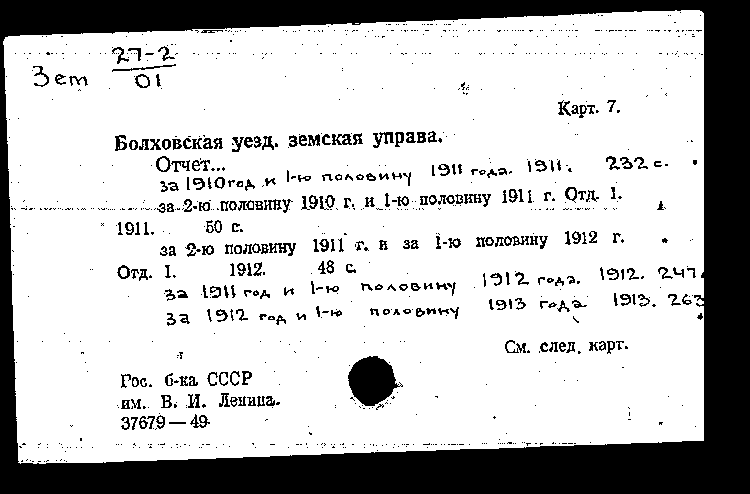 27-2
Зем 01
Карт. 7.
Болховская уезд. земская управа.
Отчет...
за 1910 год и 1-ю половину 1911 года. 1911. 232 с.
за 2-ю половину 1910 г. и 1-ю половину 1911 г. Отд. I.
1911. 50 с.
за 2-ю половину 1911 г. и за 1-ю половину 1912 г.
Отд. I. 1912. 48 с.
за 1911 год и 1-ю половину 1912 года. 1912. 247
за 1912 год и 1-ю половину 1913 года 1913. 263
См. след. карт.
Гос. б-ка СССР
им. В. И. Ленина.
37679—49